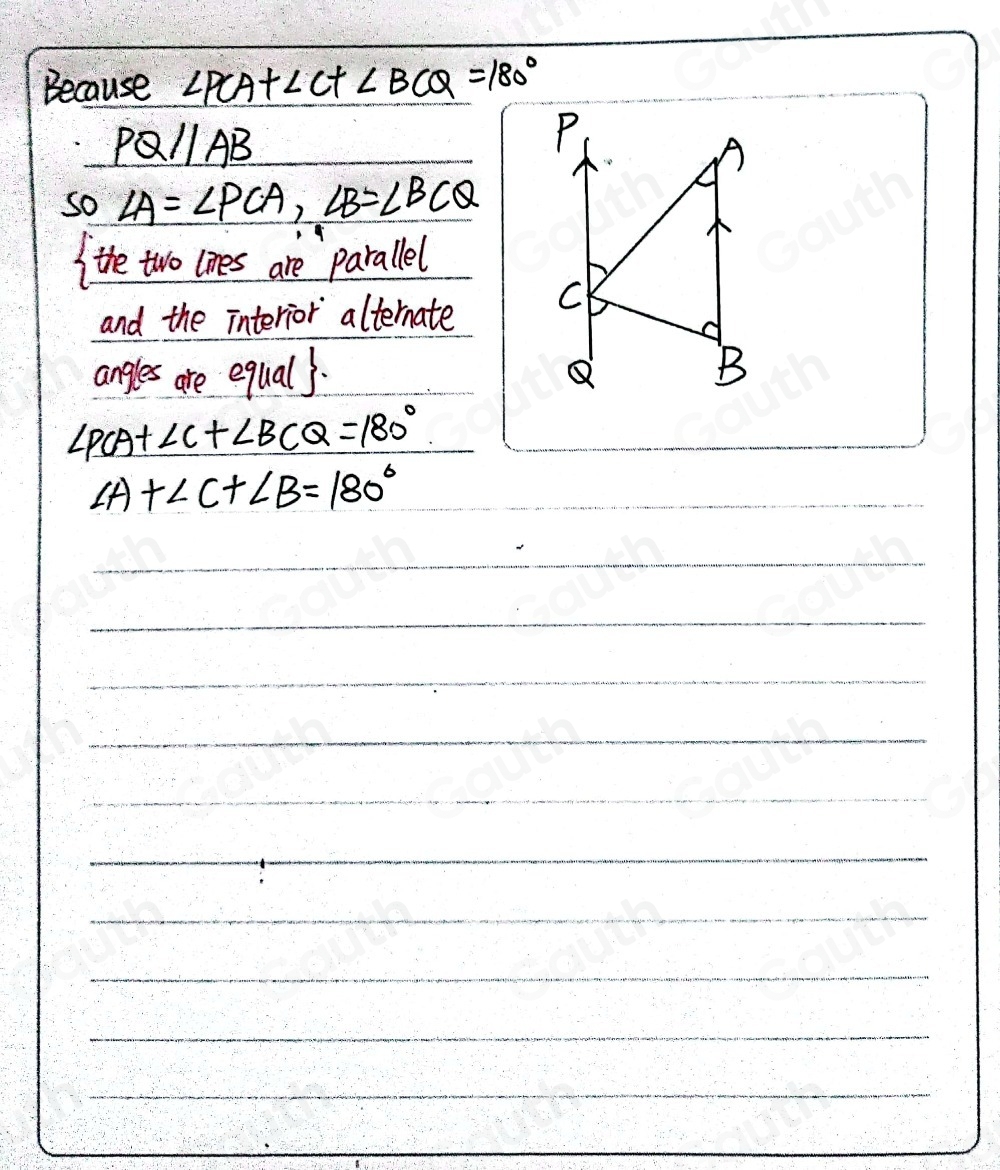 Because ∠PCA+∠C+∠BCQ=180°
PQ//AB
so ∠A=∠PCA, ∠B=∠BCQ
{the two lines are parallel
and the interior alternate
angles are equal}.
∠PCA+∠C+∠BCQ=180°
∠A+∠C+∠B=180°
P
A
C
Q
B
Gauth